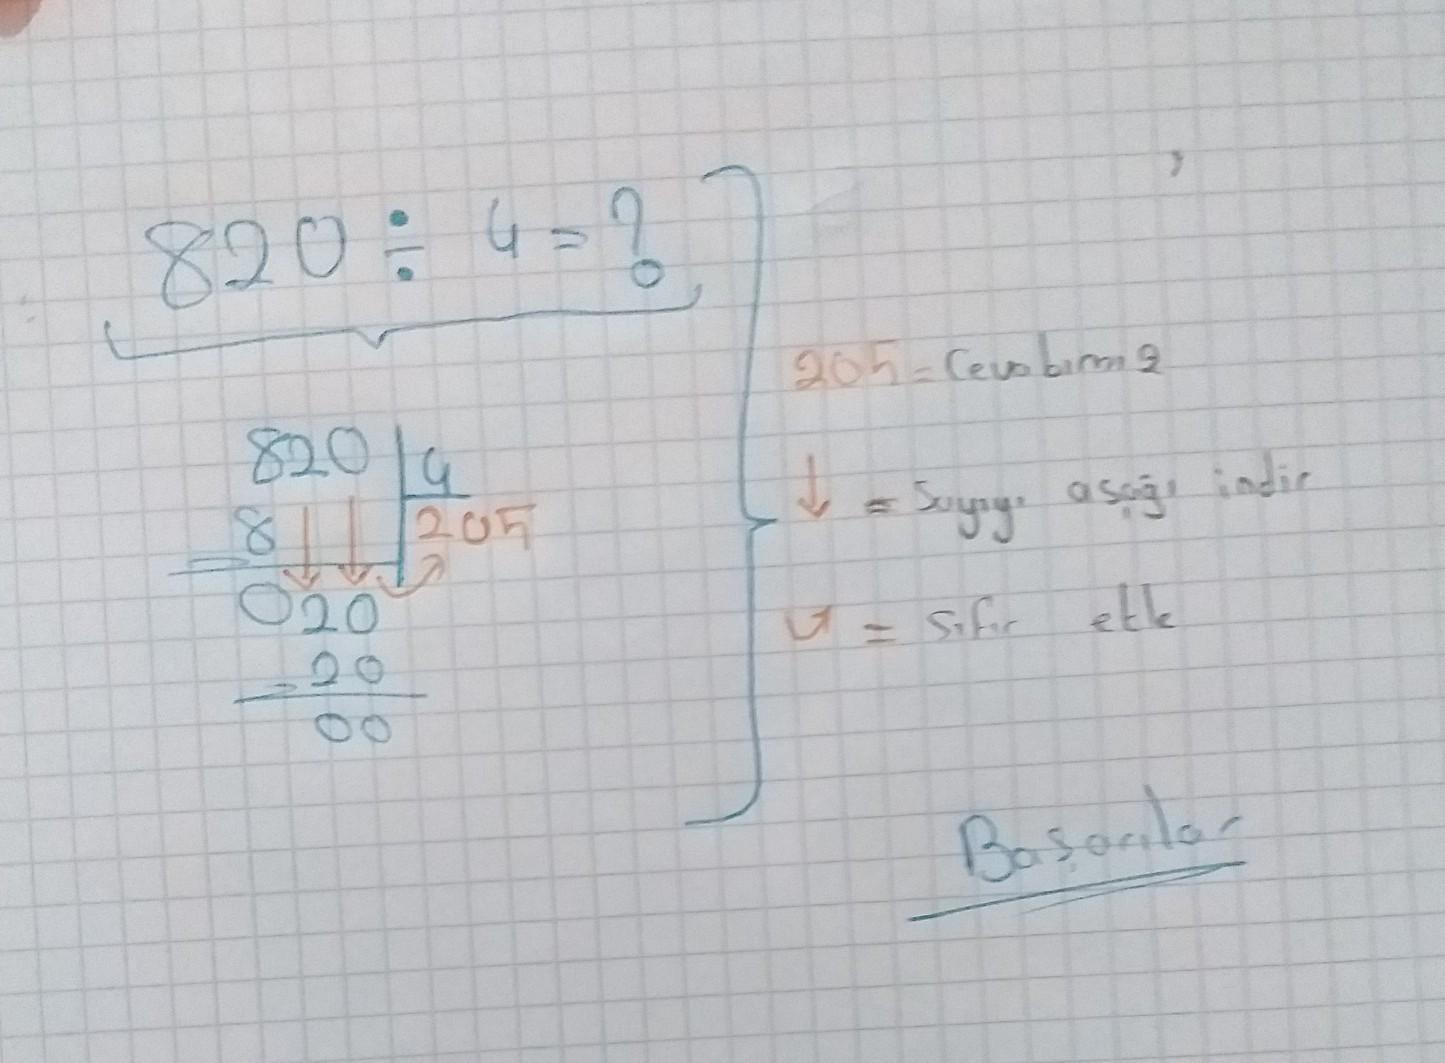 820 ÷ 4 = ?
820 4
8 205
020
- 20
00
205 = Cevabımız
↓ = Sayıyı aşağı indir
= Sıfır ekle
Başarılar